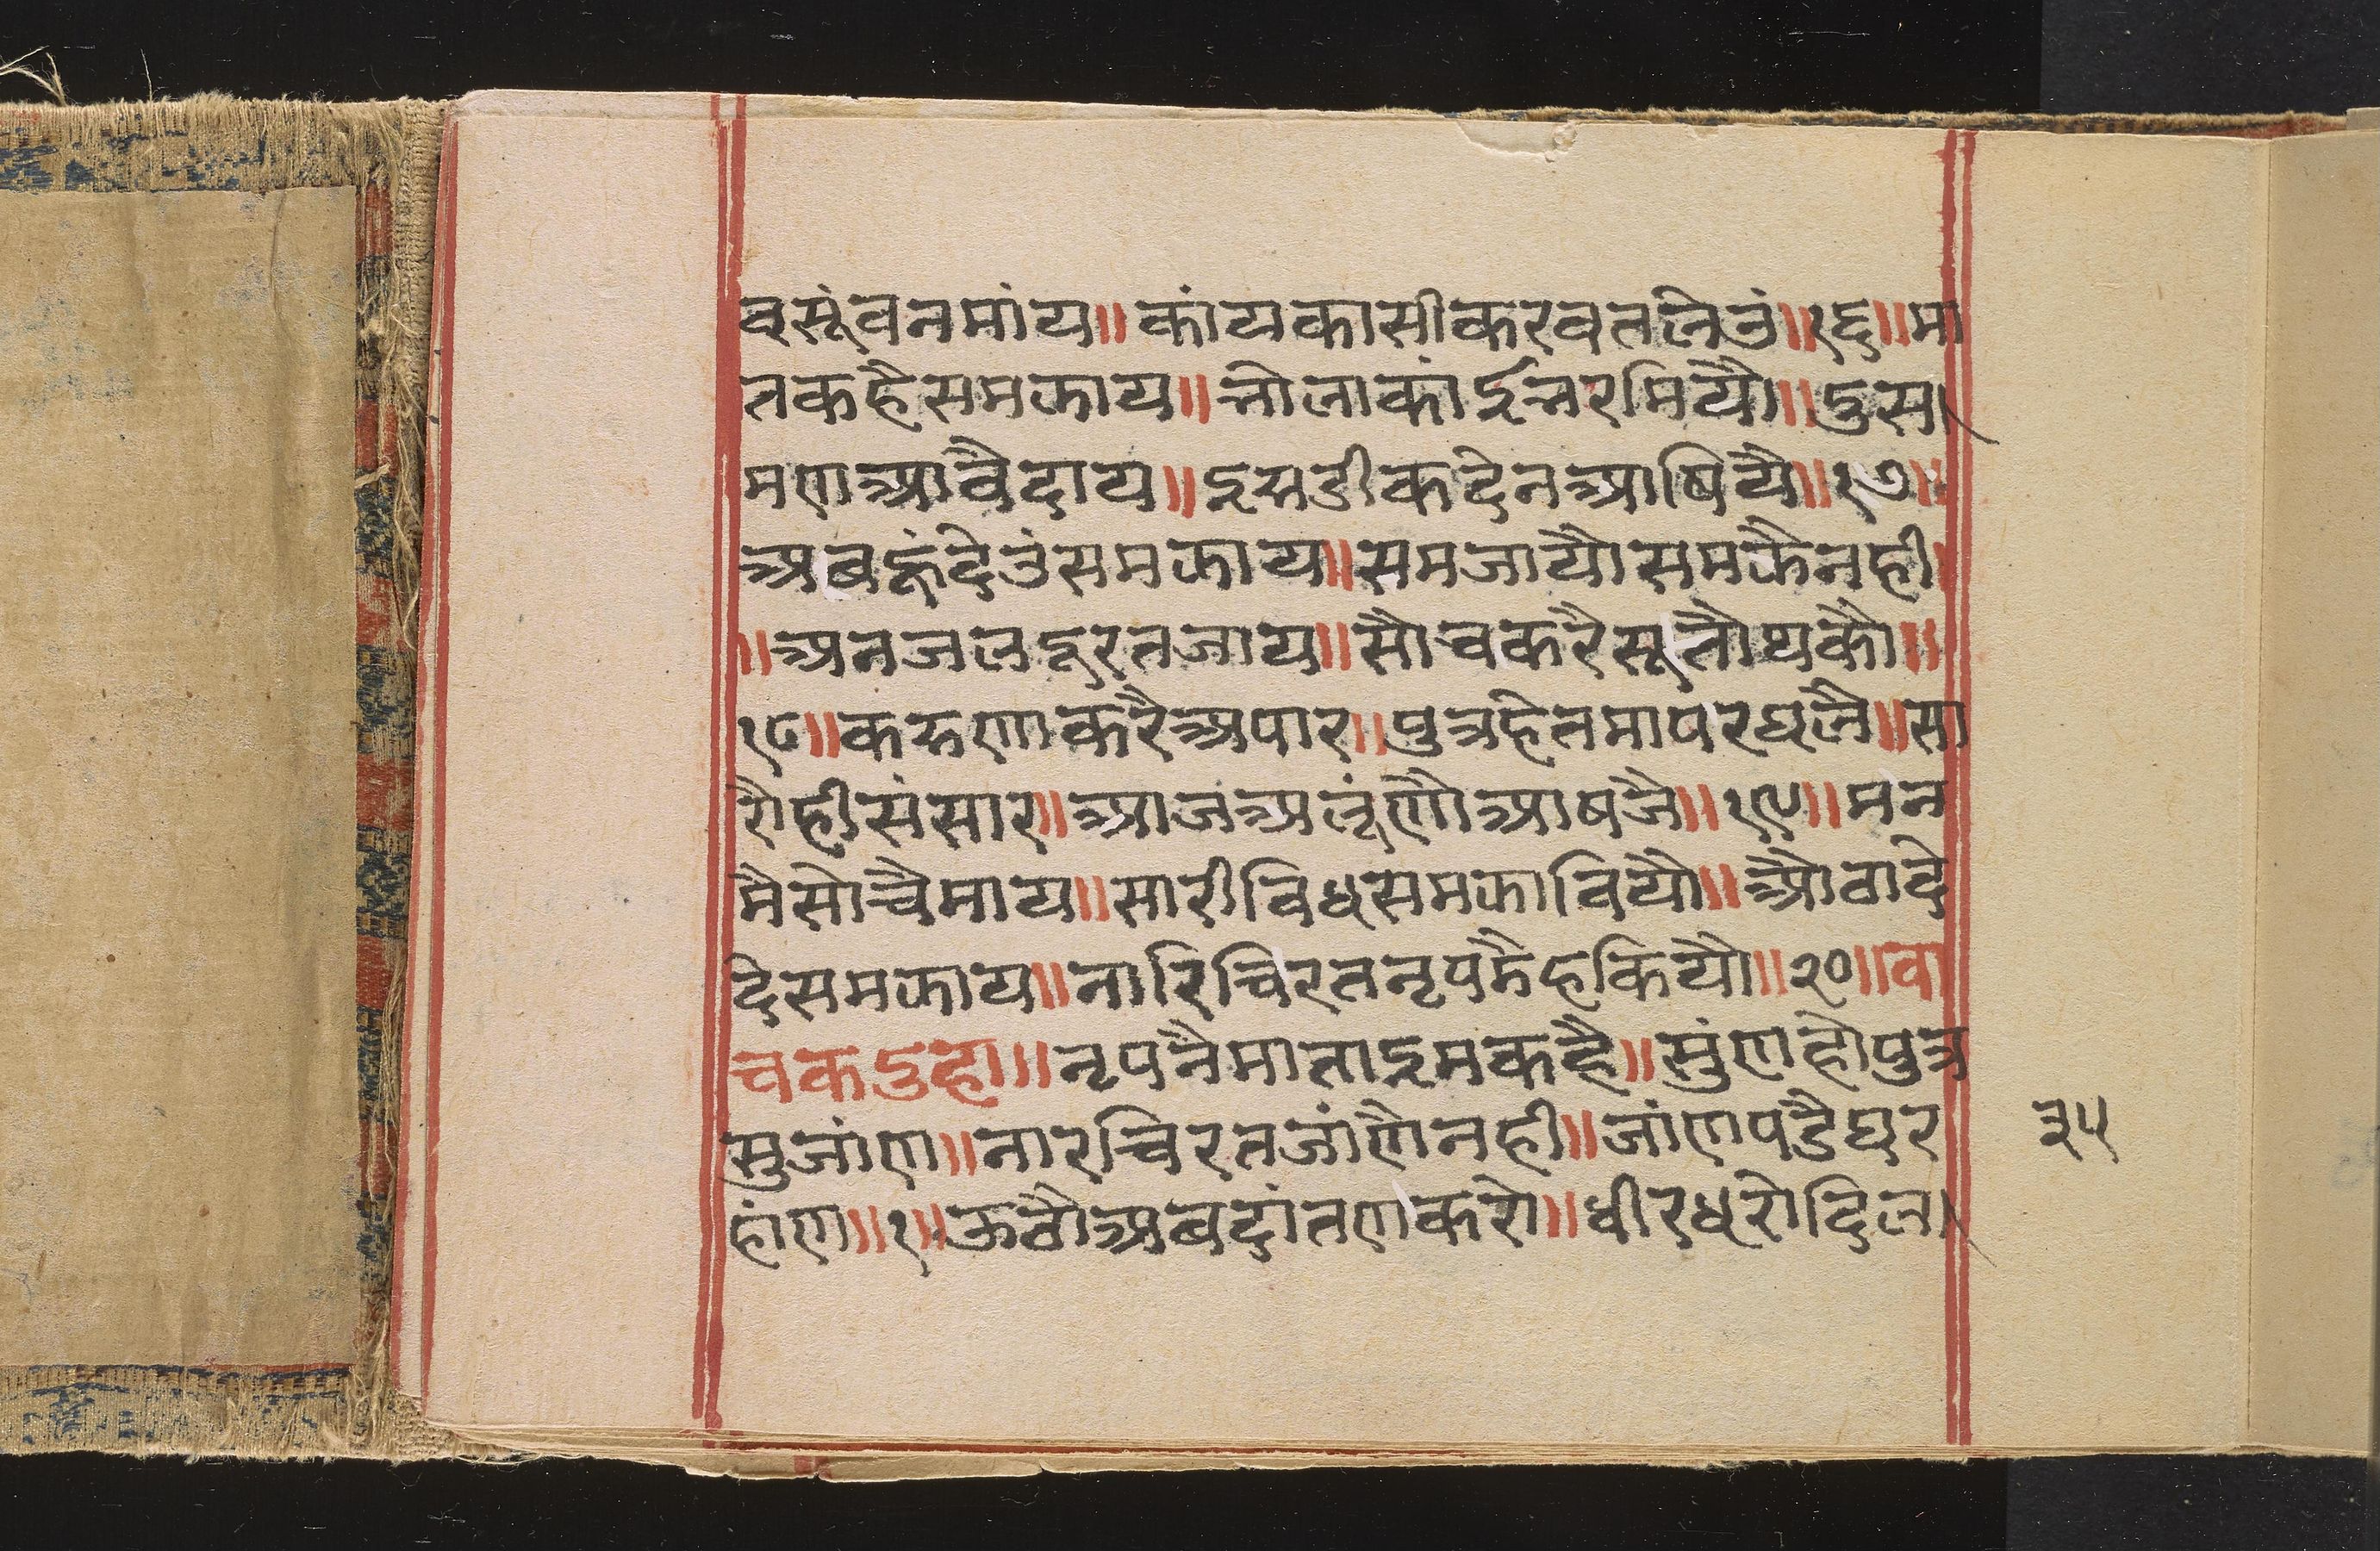 वसूंवनमांय॥कांयकासीकरवतलेउं॥१६॥मा
तकहैसमझाय॥भोलाकांईभरमियौ॥दुस
मणआवैदाय॥इसडीकदेनआषियै॥१७॥
अबहूंदेउंसमझाय॥समजायौसमझैनही
॥अनजलदूरतजाय॥सौचकरैसूतौथकौ॥
१८॥करुणाकरैअपार॥पुत्रहेतमापरघलै॥सा
रौहीसंसार॥आजअलूंणौआषजै॥१९॥मन
मैसोचैमाय॥सारीविधसमझावियौ॥औवादे
देसमझाय॥नारिचिरतनृपमैहकियौ॥२०॥वा
चकदुहा॥नृपनैमाताइमकहै॥सुंणहौपुत्र
सुजांण॥नारचिरतजांणैनही॥जांणपडैघर
हांण॥१॥ऊठौअबदांतणकरो॥धीरधरोदिल
३५